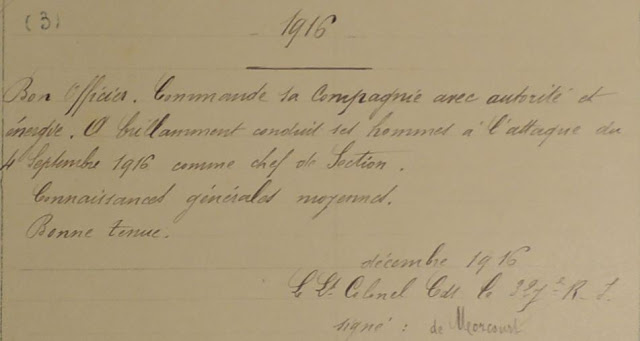 (3)
1916
Bon Officier. Commande sa Compagnie avec autorité et
énergie. A brillamment conduit ses hommes à l'attaque du
4 Septembre 1916 comme chef de Section.
Connaissances générales moyennes.
Bonne tenue.
décembre 1916
Le Lt Colonel Cdt le R. I.
signé : de